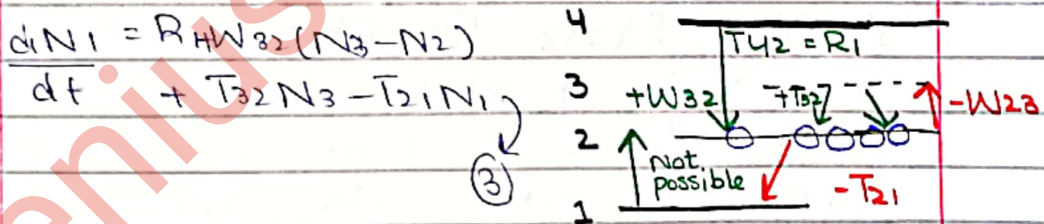 dN1/dt = R1+W32(N3-N2)
+ T32N3-T21N1
3
4
T42 = R1
3
+W32
+T32
-W23
2
Not
possible
-T21
1
enius